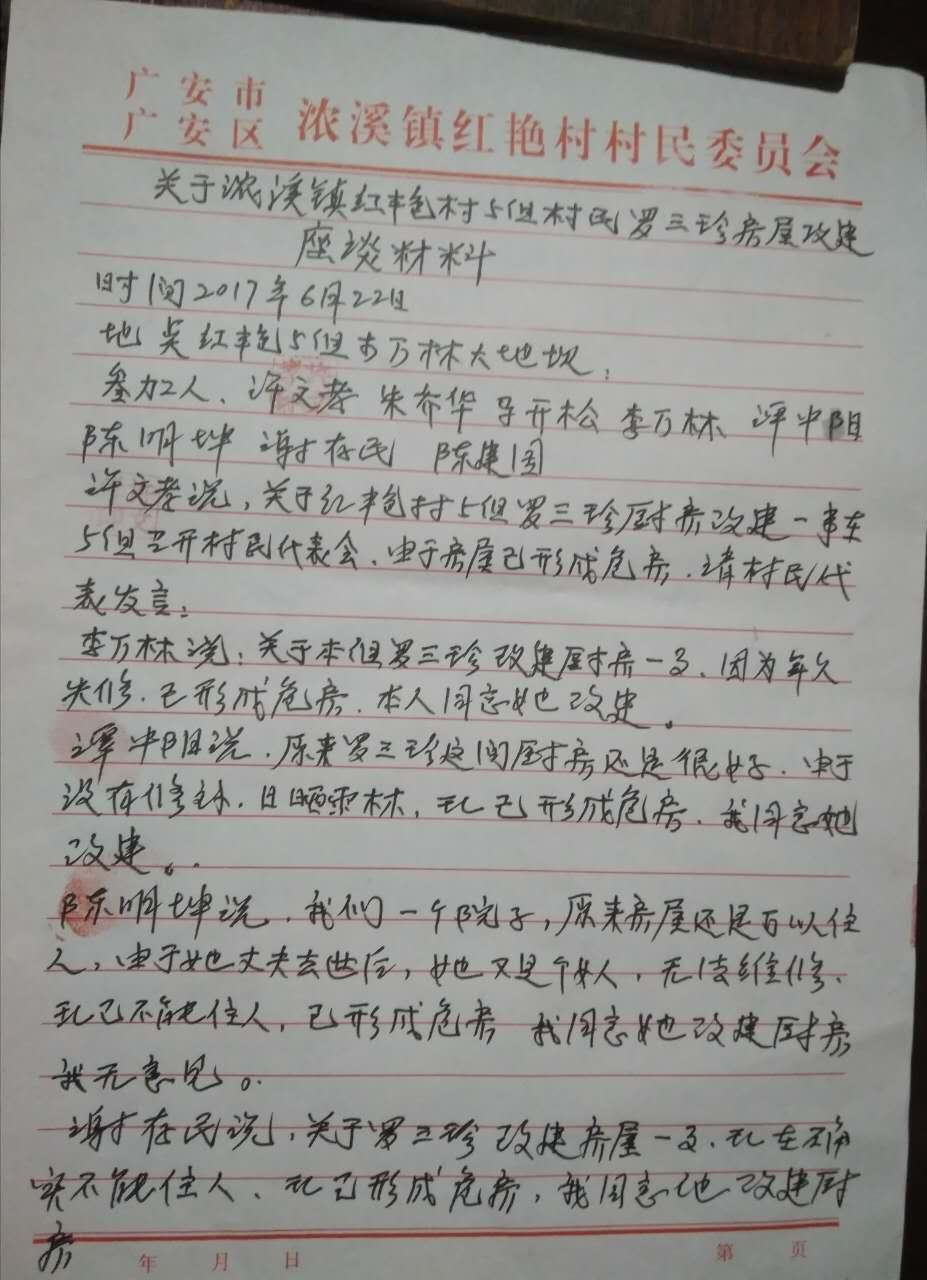 广安市
广安区 浓溪镇红艳村村民委员会
关于浓溪镇红艳村5组村民罗三珍房屋改建
座谈材料
时间2017年6月22日
地点红艳5组李万林大地坝:
参加人、许文孝 朱乔华 开松 李万林 谭中阳
陈明坤 谢存民 陈建国
许文孝说,关于红艳村5组罗三珍厨房改建一事在
5组召开村民代表会、由于房屋已形成危房.请村民代
表发言:
李万林说:关于本组罗三珍改建厨房一事、因为年久
失修.已形成危房.本人同意她改建。
谭中阳说.原来罗三珍这间厨房还是很好.由于
没有修补.日晒雨林,现已形成危房.我同意她
改建。.
陈明坤说.我们一个院子,原来房屋还是可以住
人,由于她丈夫去世后,她又是个女人,无法维修、
现已不能住人,已形成危房 我同意她改建厨房
我无意见。.
谢存民说,关于罗三珍改建房屋一事、现在确
实不能住人、现已形成危房,我同意他改建厨
房
年 月 日 第 页